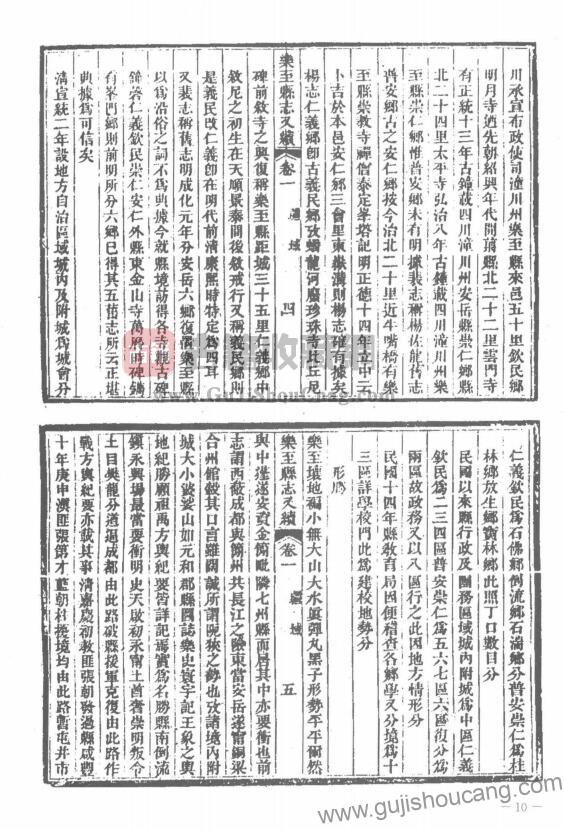 川承宣布政使司潼川州樂至縣來邑五十里欽民鄉
明月寺迺先朝紹興年代開葺縣北二十二里雲門寺
有正統十三年古鐘載四川潼川州安岳縣崇仁鄉縣
北二十四里太平寺弘治八年古鐘載四川潼川州樂
至縣崇仁鄉惟普安鄉未有明據裴志稱楊佐龍舊志
普安鄉古之安仁鄉按今治北二十里近牛嘴橋有樂
至縣崇教寺禪僧泰定筆塔記明正德十四年立中云
卜吉於本邑安仁鄉三會里東嶽溝則楊志確有據矣
楊志仁義鄉卽古義民鄉攷蟠龍河廢珍珠寺比丘尼
樂至縣志又續 卷一 疆域 四
碑前敘寺之興復稱樂至縣距城三十五里仁義鄉中
敘尼之初生在天順景泰間後敘戒行又稱義民鄉則
是義民改仁義卽在明代前清康熙時特定爲四耳
又裴志稱舊志明成化元年分安岳六鄉復置樂至縣
以爲沿俗之詞不爲典據今就縣境訪得各寺觀古碑
鐘磬仁義欽民崇仁安仁外縣東金山寺萬曆時碑鐫
有峯門鄉則前明所分六鄉已得其五舊志所云正堪
典據爲可信矣
清宣統二年設地方自治區域城內及附城爲城會分
仁義欽民爲石佛鄉倒流鄉石湍鄉分普安崇仁爲桂
林鄉放生鄉寶林鄉此照丁口數目分
民國以來縣行政及團務區域城內附城爲中區仁義
欽民爲二三四區普安崇仁爲五六七區六區復分爲
兩區故政務又以八區行之此因地方情形分
民國十四年縣教育局因便稽查各鄉學又分境爲十
三區詳學校門此爲建校地勢分
形勝
樂至壤地褊小無大山大水眞彈丸黑子形勢平平爾然
樂至縣志又續 卷一 疆域 五
與中遂安資金簡毗隣七州縣而居其中亦要衝也前
志謂西蔽成都與簡州共長江之險東當安岳遂甯銅梁
合州館轂其口言雖闊誠所謂阨狹之勢也攷諸境內附
城大小婆娑山如元和郡縣圖誌樂史寰宇記王象之輿
地紀勝顧祖禹方輿紀要皆詳記焉實爲名勝縣南倒流
鎭永興場最當要衝明史天啟初永甯土酋奢崇明叛令
土目樊龍分道逼成都由此路破縣援軍克復由此路作
戰方輿紀要亦載其事清嘉慶初教匪張朝發過縣咸豐
十年庚申滇匪張第才藍朝柱擾境均由此路暫屯井市
www.gujishoucang.com
— 10 —
www.GujiShouCang.com